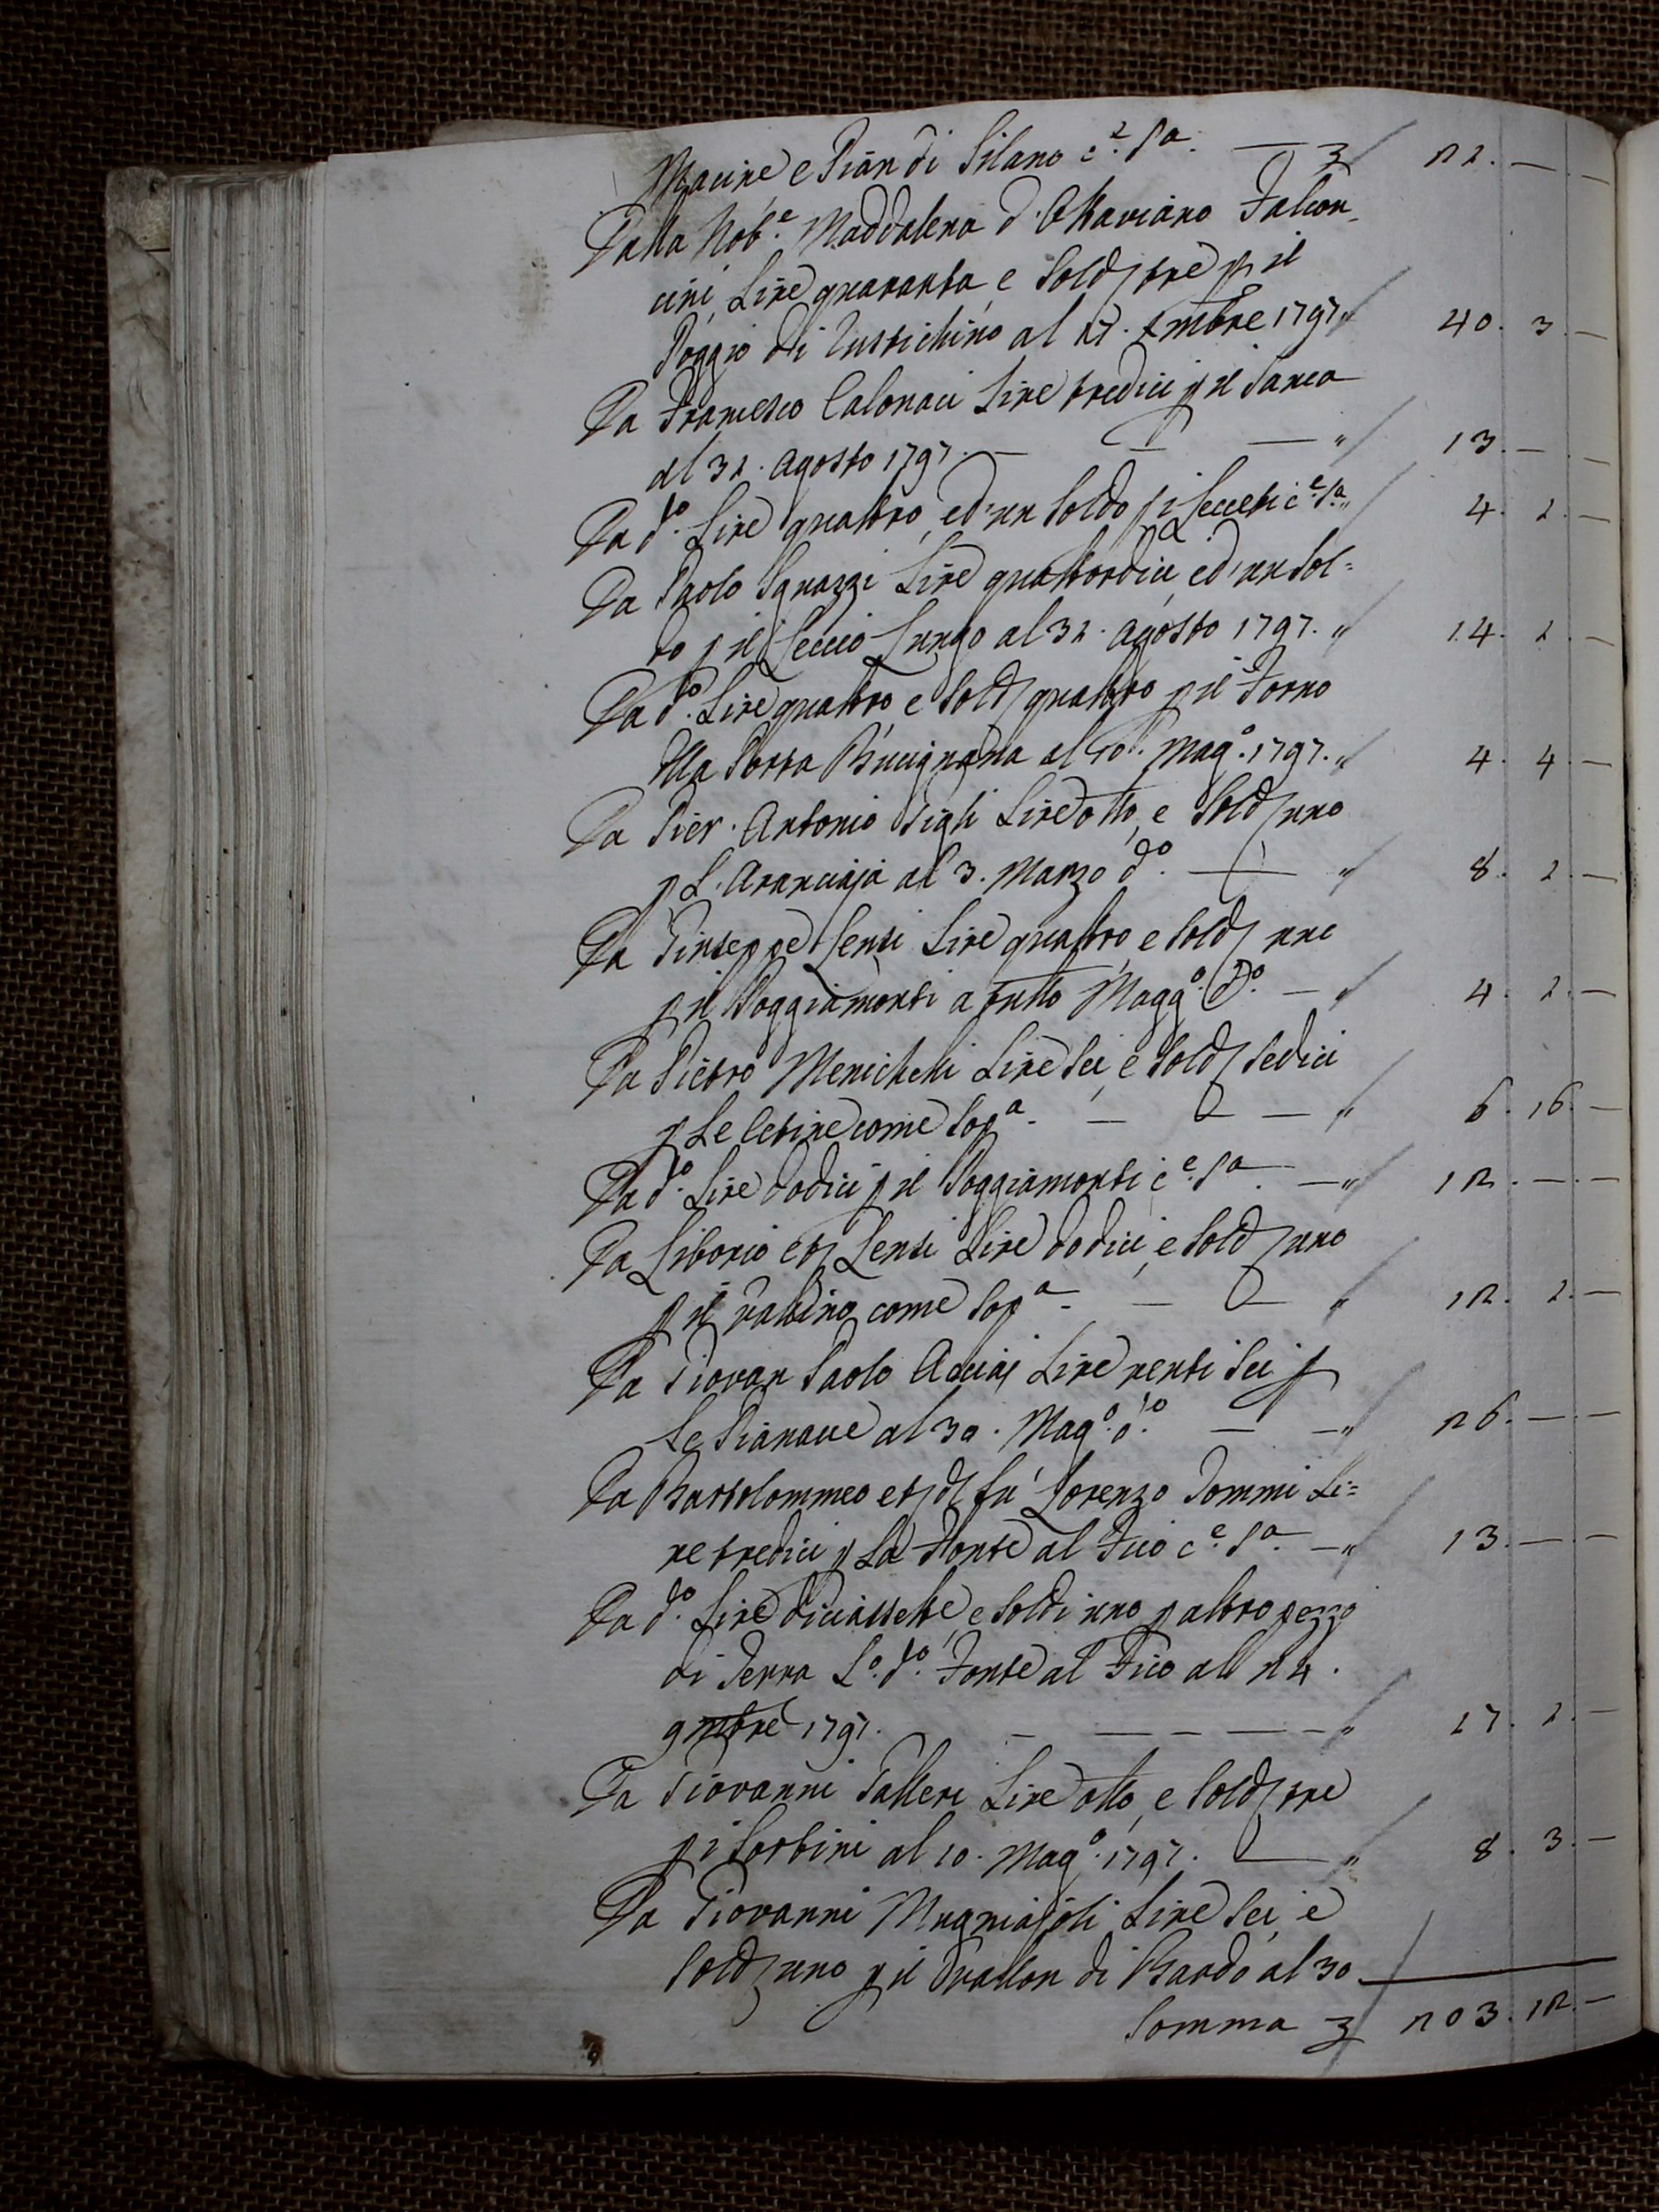 Macine e Pian di Silano c.e S.a — 3 22. — —
Dalla Nob.e Maddalena d'Ottaviano Falcon-
cini, Lire quaranta, e Sold tre p il
Poggio di al 17. Xmbre 1797 " 40. 3. —
Da Francesco Calonaci Lire tredici p il
al 31. Agosto 1797. — — — " 13. — —
Da d.o Lire quattro, ed'un Soldo p i Lecceti c.e S.a " 4. 1. —
Da Paolo Sguazzi Lire quattordici, ed'un Sol=
do p il Leccio Lungo al 31. Agosto 1797. " 14. 1. —
Da d.o Lire quattro, e Sold quattro p il Forno
Alla Porta al 10. Mag.o 1797. " 4. 4. —
Da Pier. Antonio Tigli Lire otto, e Sold uno
p L'Aranciaja al 3. Marzo d.o — " 8. 1. —
Da Giuseppe Lensi Lire quattro, e Sold uno
p il Poggiamonti a tutto Magg.o d.o — " 4. 1. —
Da Pietro Menichetti Lire Sei, e Sold Sedici
p Le Cetine come Sop.a — — — " 6. 16. —
Da d.o Lire dodici p il Poggiamonti c.e S.a — " 12. — —
Da Liborio et Lensi Lire dodici, e Sold uno
p il come Sop.a — — " 12. 1. —
Da Giovan Paolo Acciaj Lire venti Sei p
Le Pianacce al 30. Mag.o d.o — — " 26. — —
Da Bartolommeo et d fu Lorenzo Tommi Li=
re tredici p La Fonte al Fico c.e S.a — " 13. — —
Da d.o Lire diciassette, e Soldi uno p altro pezzo
di Terra L.o d.o Fonte al Fico all 24.
9mbre 1797. — — — — — " 17. 1. —
Da Giovanni Salleri Lire otto, e Sold tre
p i Sorbini al 10. Mag.o 1797. — " 8. 3. —
Da Giovanni Mugniajoli Lire Sei, e
Sold uno p il di Bardo al 30
Somma 3 203. 12. —